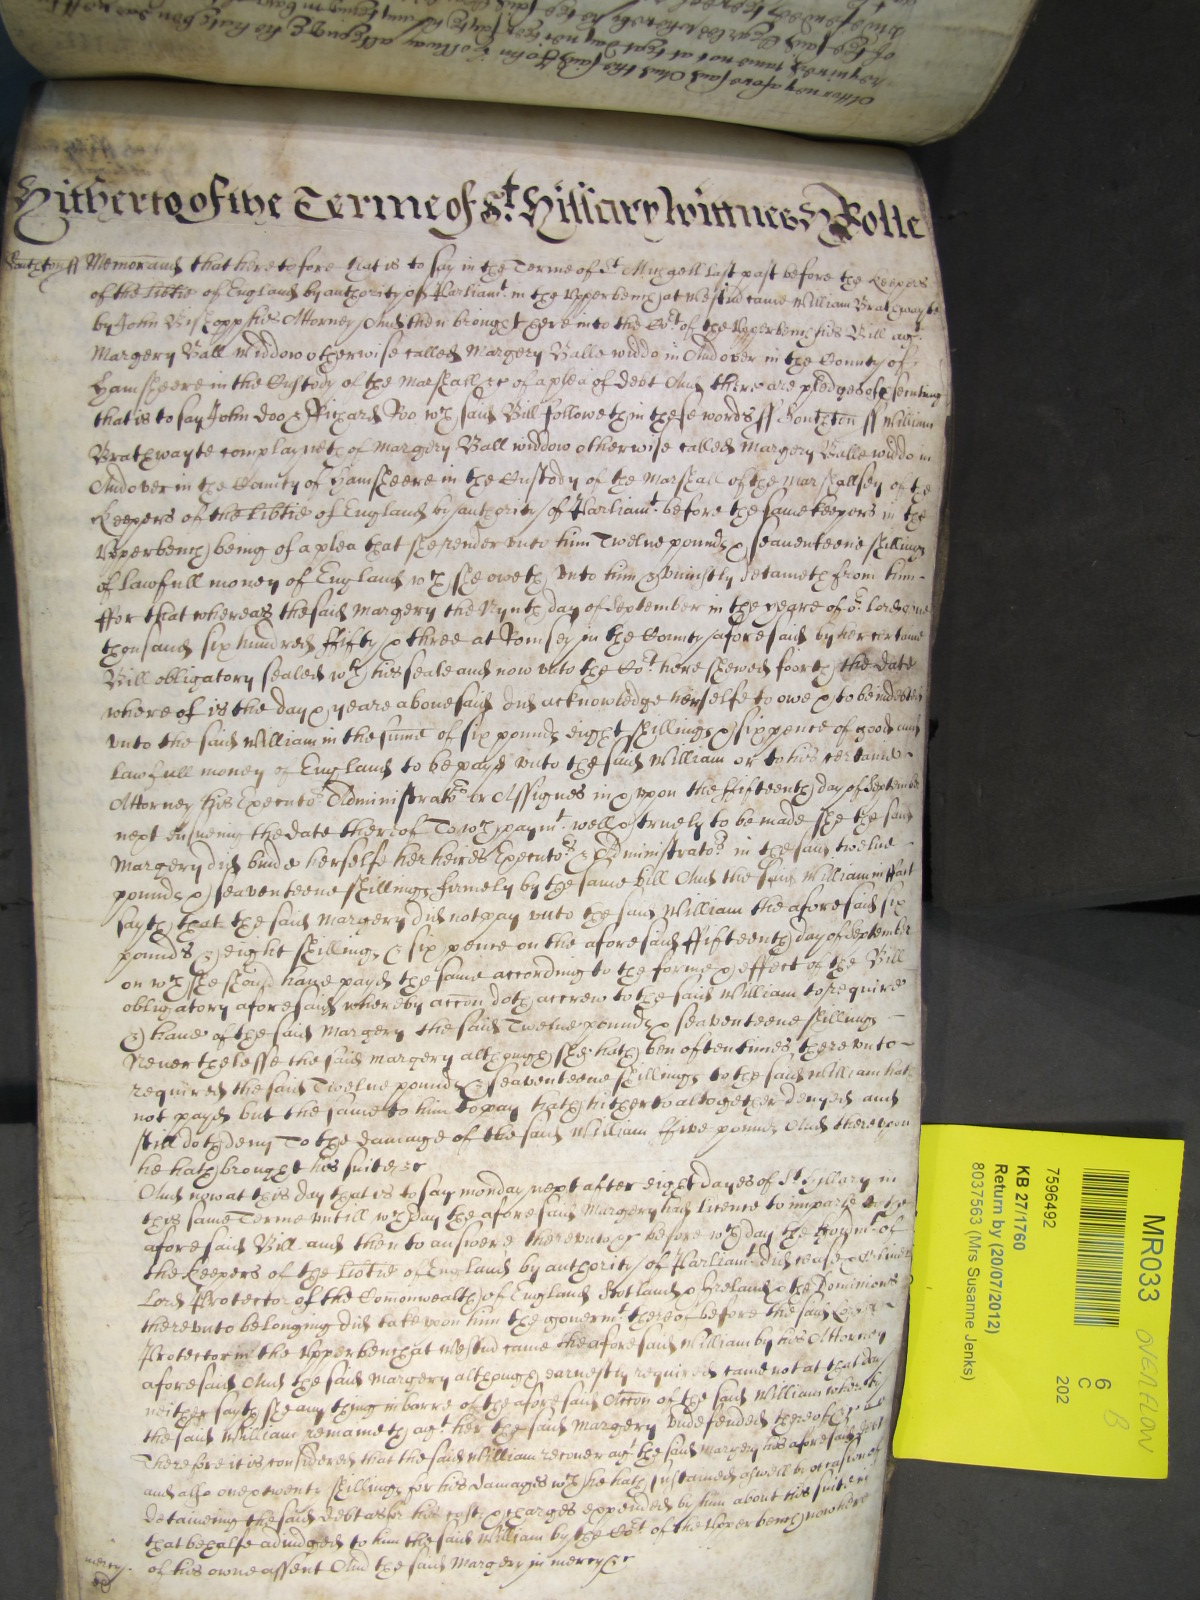 Hitherto of the Terme of St. Hillary Wittnes Rolle
Memorand that heretofore that is to say in the Terme of St Michaell last past before the Keepers
of the libtie of England by authority of Parliamt. in the Upperbench at Westmr came William Brathwayte
by John his Attorney And then brought here into the Cort of the Upperbench his Bill agt.
Margery Ball widdow otherwise called Margery Balle widdo in Andover in the County of
Hamsheere in the Custody of the Marshall &c of a plea of debt And there are pledges of p secuting
that is to say John Doo & Richard Roo wch said Bill followeth in these words ss Southton ss William
Brathwayte complayneth of Margery Ball widdow otherwise called Margery Balle widdo in
Andover in the County of Hamsheere in the Custody of the Marshall of the Marshallsey of the
Keepers of the libtie of England by authority of Parliamt. before the same keepers in the
Upperbench being of a plea that she render unto him Twelve pounds & seaventeene shillings
of lawfull money of England wch she oweth unto him & uniustly detaineth from him
ffor that whereas the said Margery the Nynth day of September in the yeare of or. Lord one
thousand six hundred ffifty & three at Romsey in the County aforesaid by her certaine
Bill obligatory sealed wth his seale and now unto the Cort here shewed foorth the date
whereof is the day & yeare abovesaid did acknowledge herselfe to owe & to be indebted
unto the said William in the sume of six pounds eight shillings & six pence of good and
lawfull money of England to be payd unto the said William or to his certaine
Attorney his Executors Administrators or Assignes in & upon the ffifteenth day of September
next ensueing the date thereof To wch paymt. well & truely to be made she the said
Margery did binde herselfe her heires Executors & Administrators in the said twelve
pounds & seaventeene shillings firmely by the same bill And the said William in ffact
sayth that the said Margery did not pay unto the said William the aforesaid six
pounds & eight shillings & six pence on the aforesaid ffifteenth day of September
on wch she should have payd the same according to the forme & effect of the Bill
obligatory aforesaid whereby accon doth accrew to the said William to require
& have of the said Margery the said Twelve pounds & seaventeene shillings
Neverthelesse the said Margery although she hath ben oftentimes thereunto
required the said Twelve pounds & seaventeene shillings to the said William hath
not payd but the same to him to pay hath hitherto altogether denyed and
still doth deny To the damage of the said William ffive pounds And thereupon
he hath brought his suite &c
And now at this day that is to say monday next after eight dayes of St Hillary in
this same Terme untill wch day the aforesaid Margery had licence to imparle to the
aforesaid Bill and then to answere thereunto &c before wch day the Governmt. of
the Keepers of the libtie of England by authority of Parliamt. did cease & Oliver
Lord Protector of the Comonwealth of England Scotland & Ireland & the Dominions
thereunto belonging did take upon him the governmt. thereof before the said Lord
Protector in the Upperbench at Westmr came the aforesaid William by his Attorney
aforesaid And the said Margery although earnestly required came not at that day
neither sayth she any thing in barre of the aforesaid Accon of the said William whereby
the said William remaineth agt. her the said Margery undefended thereof
Therefore it is considered that the said William recover agt. the said Margery his aforesaid debt
and also one & twenty shillings for his damages wch he hath sustained aswell by occasion of
detaineing the said debt as for his costs & charges expended by him about his suite in
that behalfe adiudged to him the said William by the Cort of the Upperbench now here
of his owne assent And the said Margery in mercy &c
mercy
MR033
OVERFLOW
B
6
C
202
7596492
KB 27/1760
Return by (20/07/2012)
8037563 (Mrs Susanne Jenks)